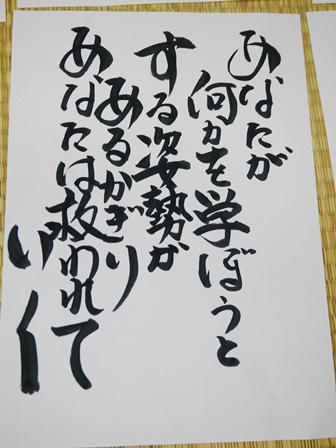 あなたが
何かを学ぼうと
する姿勢が
あるかぎり
あなたは救われて
いく